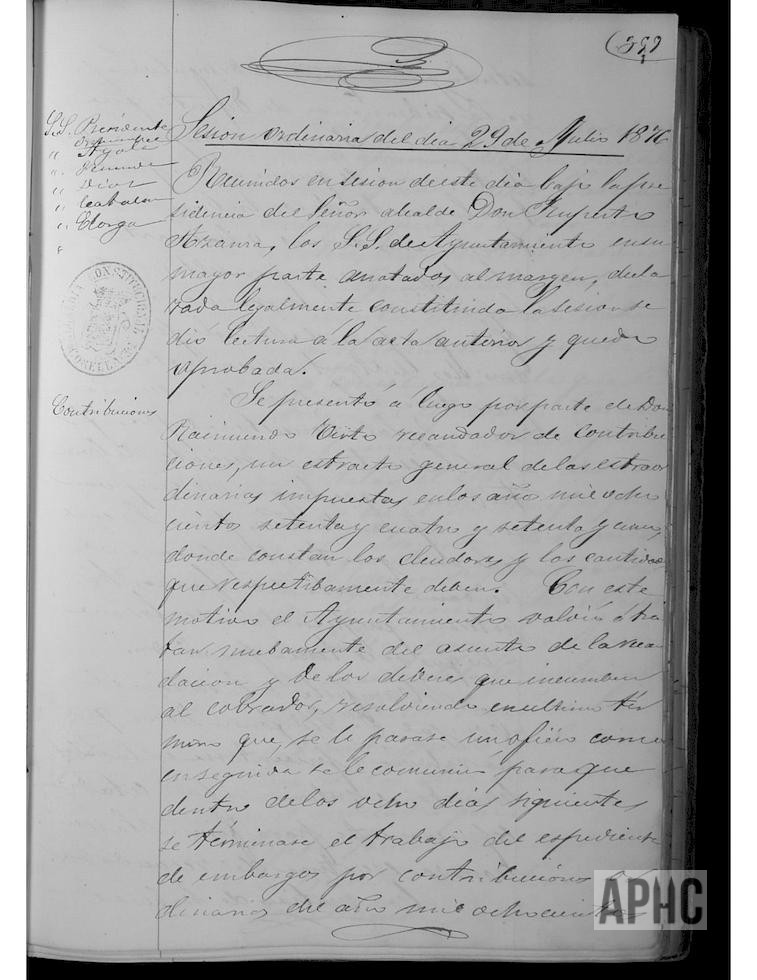 399
S.S. Presidente
" Ayala
" Jimenez
" Dios
" Catalan
" Elorga
Sesion ordinaria del dia 29 de Julio 1876
Reunidos en sesion de este dia bajo la pre
sidencia del Señor alcalde Don Ruperto
Azamra, los S.S. de Ayuntamiento en su
mayor parte anotados al margen, decla
rada legalmente constituida la sesion se
dió lectura a la acta anterior y quedo
aprobada.
Contribuciones
Se presentó á luego por parte de Don
Raimundo Virto recaudador de contribu
ciones, un estracto general de las estraor
dinarias impuestas en los año mil ocho
cientos setenta y cuatro y setenta y cinco,
donde constan los deudores y las cantidad
que respectibamente deben. Con este
motivo el Ayuntamiento volvió á tra
tar nuebamente del asunto de la recau
dacion y de los deberes que incumben
al cobrador, resolviendo en ultimo tér
mino que, se le pasase un oficio como
en seguida se le comunico para que
dentro de los ocho dias siguientes
se términase el trabajo del espediente
de embargos por contribucions or
dinarias del año mil ochocientos
ALCALDIA CONSTITUCIONAL
CORELLA
APHC